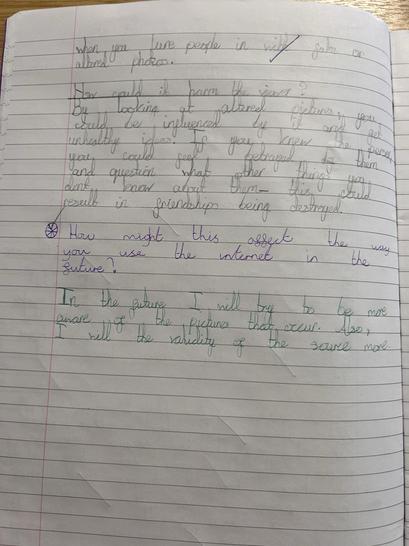 when you lure people in with jobs or
altered photos.
How could it harm the viewer?
By looking at altered pictures, you
could be influenced by it and get
unhealthy ideas. If you knew the person,
you could feel betrayed by them
and question what other things you
dont know about them_ this could
result in friendships being destroyed.
How might this affect the way
you use the internet in the
future?
In the future I will try to be more
aware of the pictures that occur. Also,
I will the validity of the source more